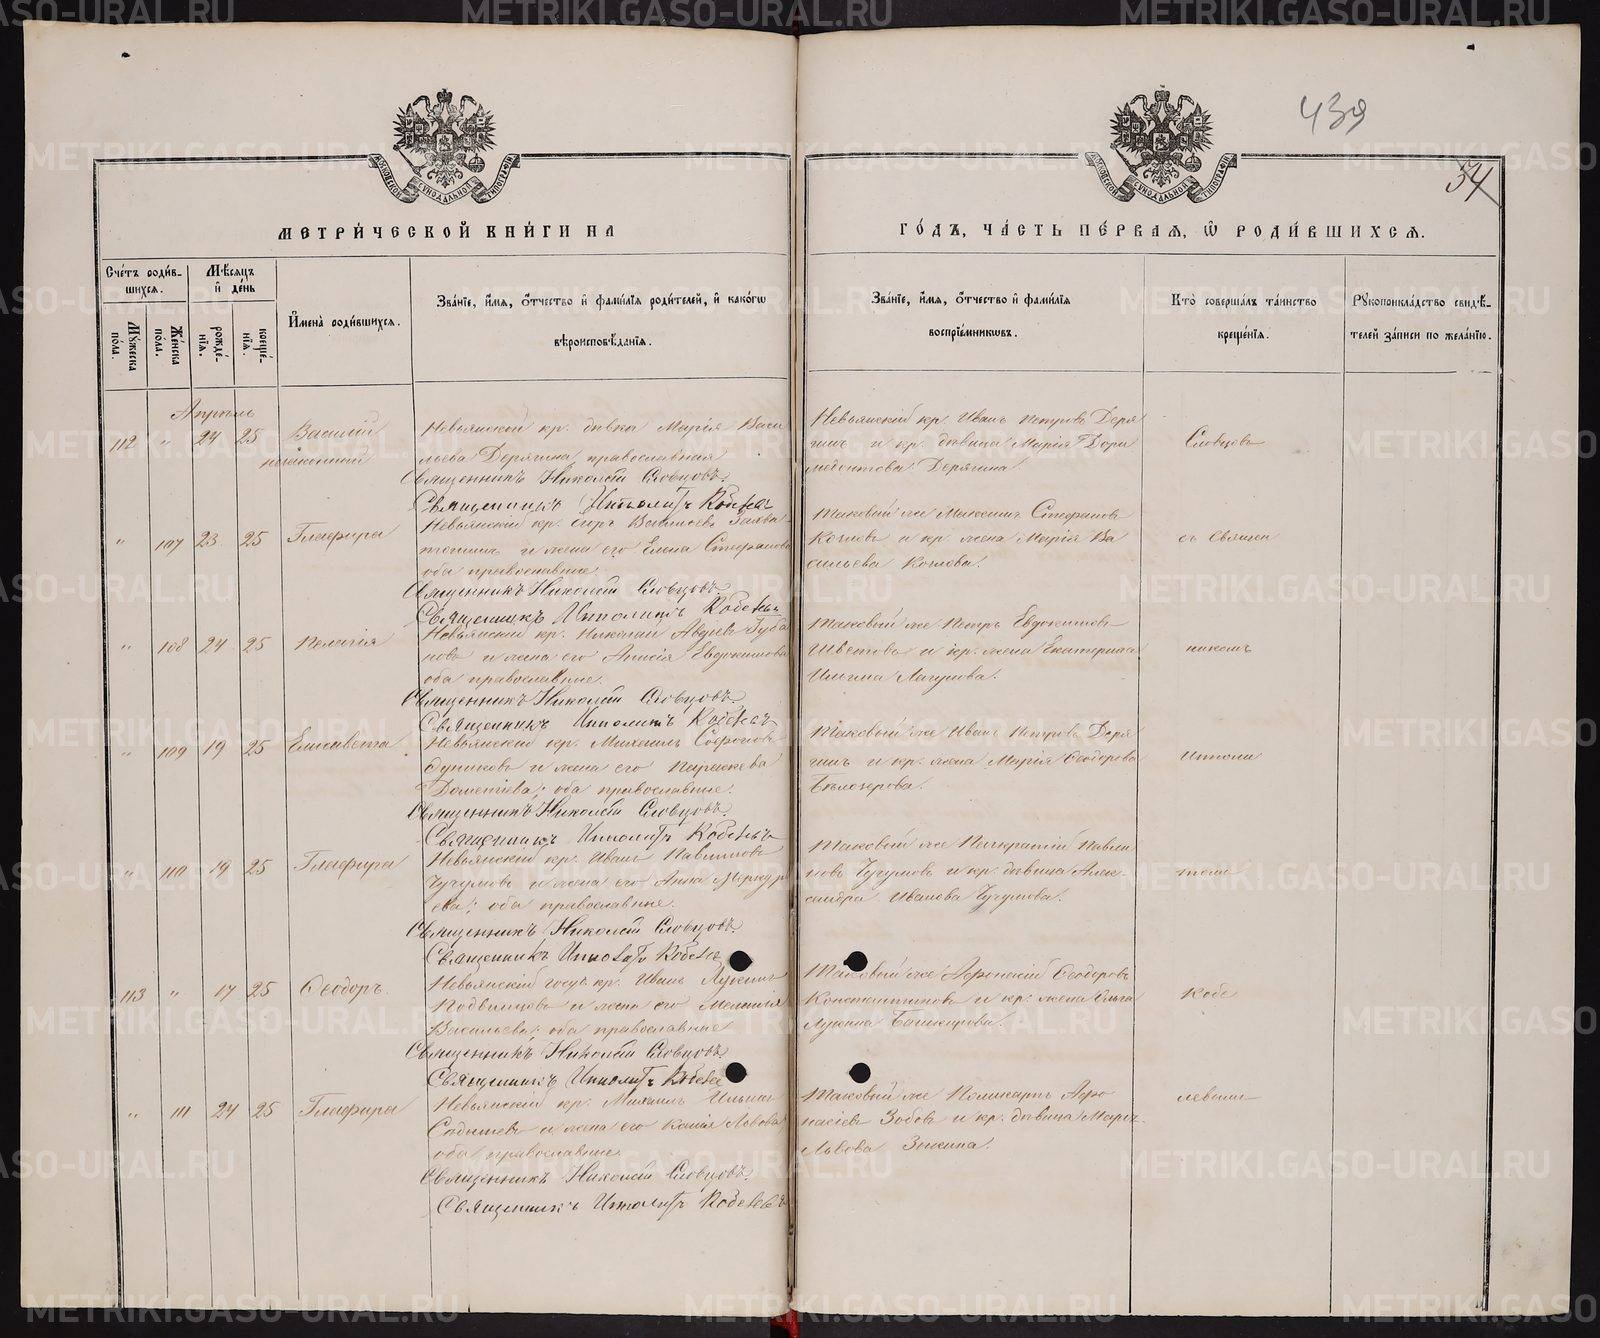 439
34
МЕТРИ́ЧЕСКОЙ КНИ́ГИ НА
ГО́ДЪ, ЧА́СТЬ ПЕ́РВАЯ, Ѡ РОДИ́ВШИХСЯ.
Сче́тъ роди́в-
шихся.
Мꙋ́жеска по́ла.
Же́нска по́ла.
Мѣ́сяцъ и҆ де́нь
рожде́-
нїя.
креще́-
нїя.
И҆мена̀ роди́вшихся.
Зва́нїе, и҆́мя, ѻ҆́тчество и҆ фами́лїя роди́телей, и҆ како́гѡ
вѣроисповѣ́данїя.
Зва́нїе, и҆́мя, ѻ҆́тчество и҆ фами́лїя
воспрїе́мникѡвъ.
Кто̀ соверша́лъ та́инство
креще́нїя.
Рꙋкоприкла́дство свидѣ́-
телей за́писи по жела́нїю.
Апрѣль
112 " 24 25 Василій
незаконный
Невьянскій кр. дѣвка Марія Васи
льева Дерягина, православная
Священникъ Николай Словцовъ.
Священникъ Ипполитъ Кобелевъ
Невьянскій кр. Иванъ Петровъ Деря
гинъ и кр. дѣвица Марія
Дерягина.
Словцовъ
" 107 23 25 Глафира
Невьянскій кр.
и жена его Елена Стефанова
оба православные.
Священникъ Николай Словцовъ.
Священникъ Ипполитъ Кобелевъ
Таковый же Максимъ Стефановъ
Козловъ и кр. жена Марія Ва
сильева Козлова.
съ Священ
" 108 24 25 Пелагія
Невьянскій кр. Николай Авдіевъ Губа
новъ и жена его Анисія Евдокимова
оба православные.
Священникъ Николай Словцовъ.
Священникъ Ипполитъ Кобелевъ
Таковый же Петръ Евдокимовъ
и кр. жена Екатерина
никомъ
" 109 19 25 Елисавета
Невьянскій кр. Михаилъ Софроновъ
и жена его Параскева
Дометіева; оба православные.
Священникъ Николай Словцовъ.
Священникъ Ипполитъ Кобелевъ
Таковый же Иванъ Петровъ Деря
гинъ и кр. жена Марія Ѳеодорова
Бѣлозерова.
Ипполи
" 110 19 25 Глафира
Невьянскій кр. Иванъ
Чугуновъ и жена его Анна Меркурь
ева; оба православные.
Священникъ Николай Словцовъ.
Священникъ Ипполитъ Кобелев
Таковый же Панкратій Павли
новъ Чугуновъ и кр. дѣвица Алек-
сандра Иванова Чугунова.
томъ
113 " 17 25 Ѳеодоръ.
Невьянскій госуд. кр. Иванъ Лукинъ
Подвинцовъ и жена его Меланія
Васильева; оба православные
Священникъ Николай Словцовъ.
Священникъ Ипполитъ Кобелев
Таковый же Ѳеодоровъ
Константиновъ и кр. жена Ольга
Лукина Башкирова.
Кобе
" 111 24 25 Глафира
Невьянскій кр. Михаилъ Ильинъ
и жена его Ксенія Львова
оба православные.
Священникъ Николай Словцовъ.
Священникъ Ипполитъ Кобелевъ
Таковый же Поликарпъ Аѳо
насіевъ Зобовъ и кр. дѣвица Марія
Львова Зыкина.
левымъ
METRIKI.GASO-URAL.RU